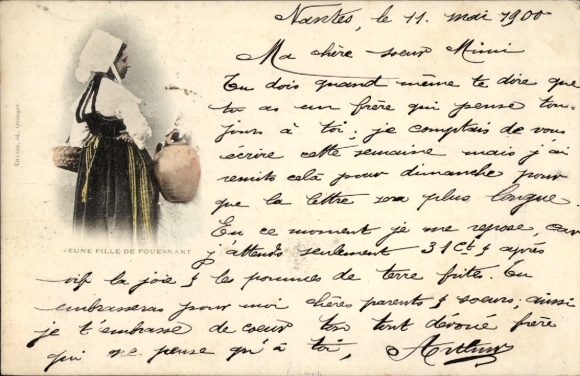 Nantes, le 11 mai 1900
Ma chère soeur Mimi
Tu dois quand même te dire que
tu as un frère qui pense tou-
jours à toi; je comptais de vous
écrire cette semaine mais j'ai
remits celà pour dimanche pour
que la lettre soa plus longue.
En ce moment je me repose, car
j'attends seulement 31 Ct & après
vif la joie & les pommes de terre frites. Tu
embrasseras pour moi chères parents & soeurs; aussi
je t'embrasse de coeur ton tout dévoué frère
qui ne pense qu'à toi, Arthur
JEUNE FILLE DE FOUESNANT
, éd. Quimper